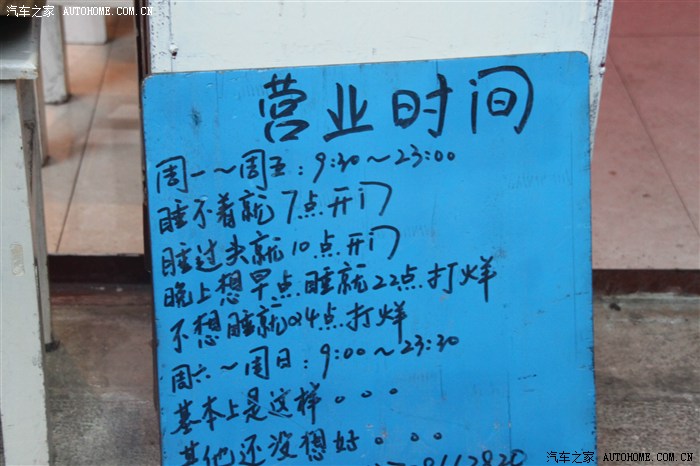 汽车之家 AUTOHOME.COM.CN
营业时间
周一～周五：9:30～23:00
睡不着就7点开门
睡过头就10点开门
晚上想早点睡就22点打烊
不想睡就04点打烊
周六～周日：9:00～23:30
基本上是这样。。。
其他还没想好。。。
汽车之家 AUTOHOME.COM.CN